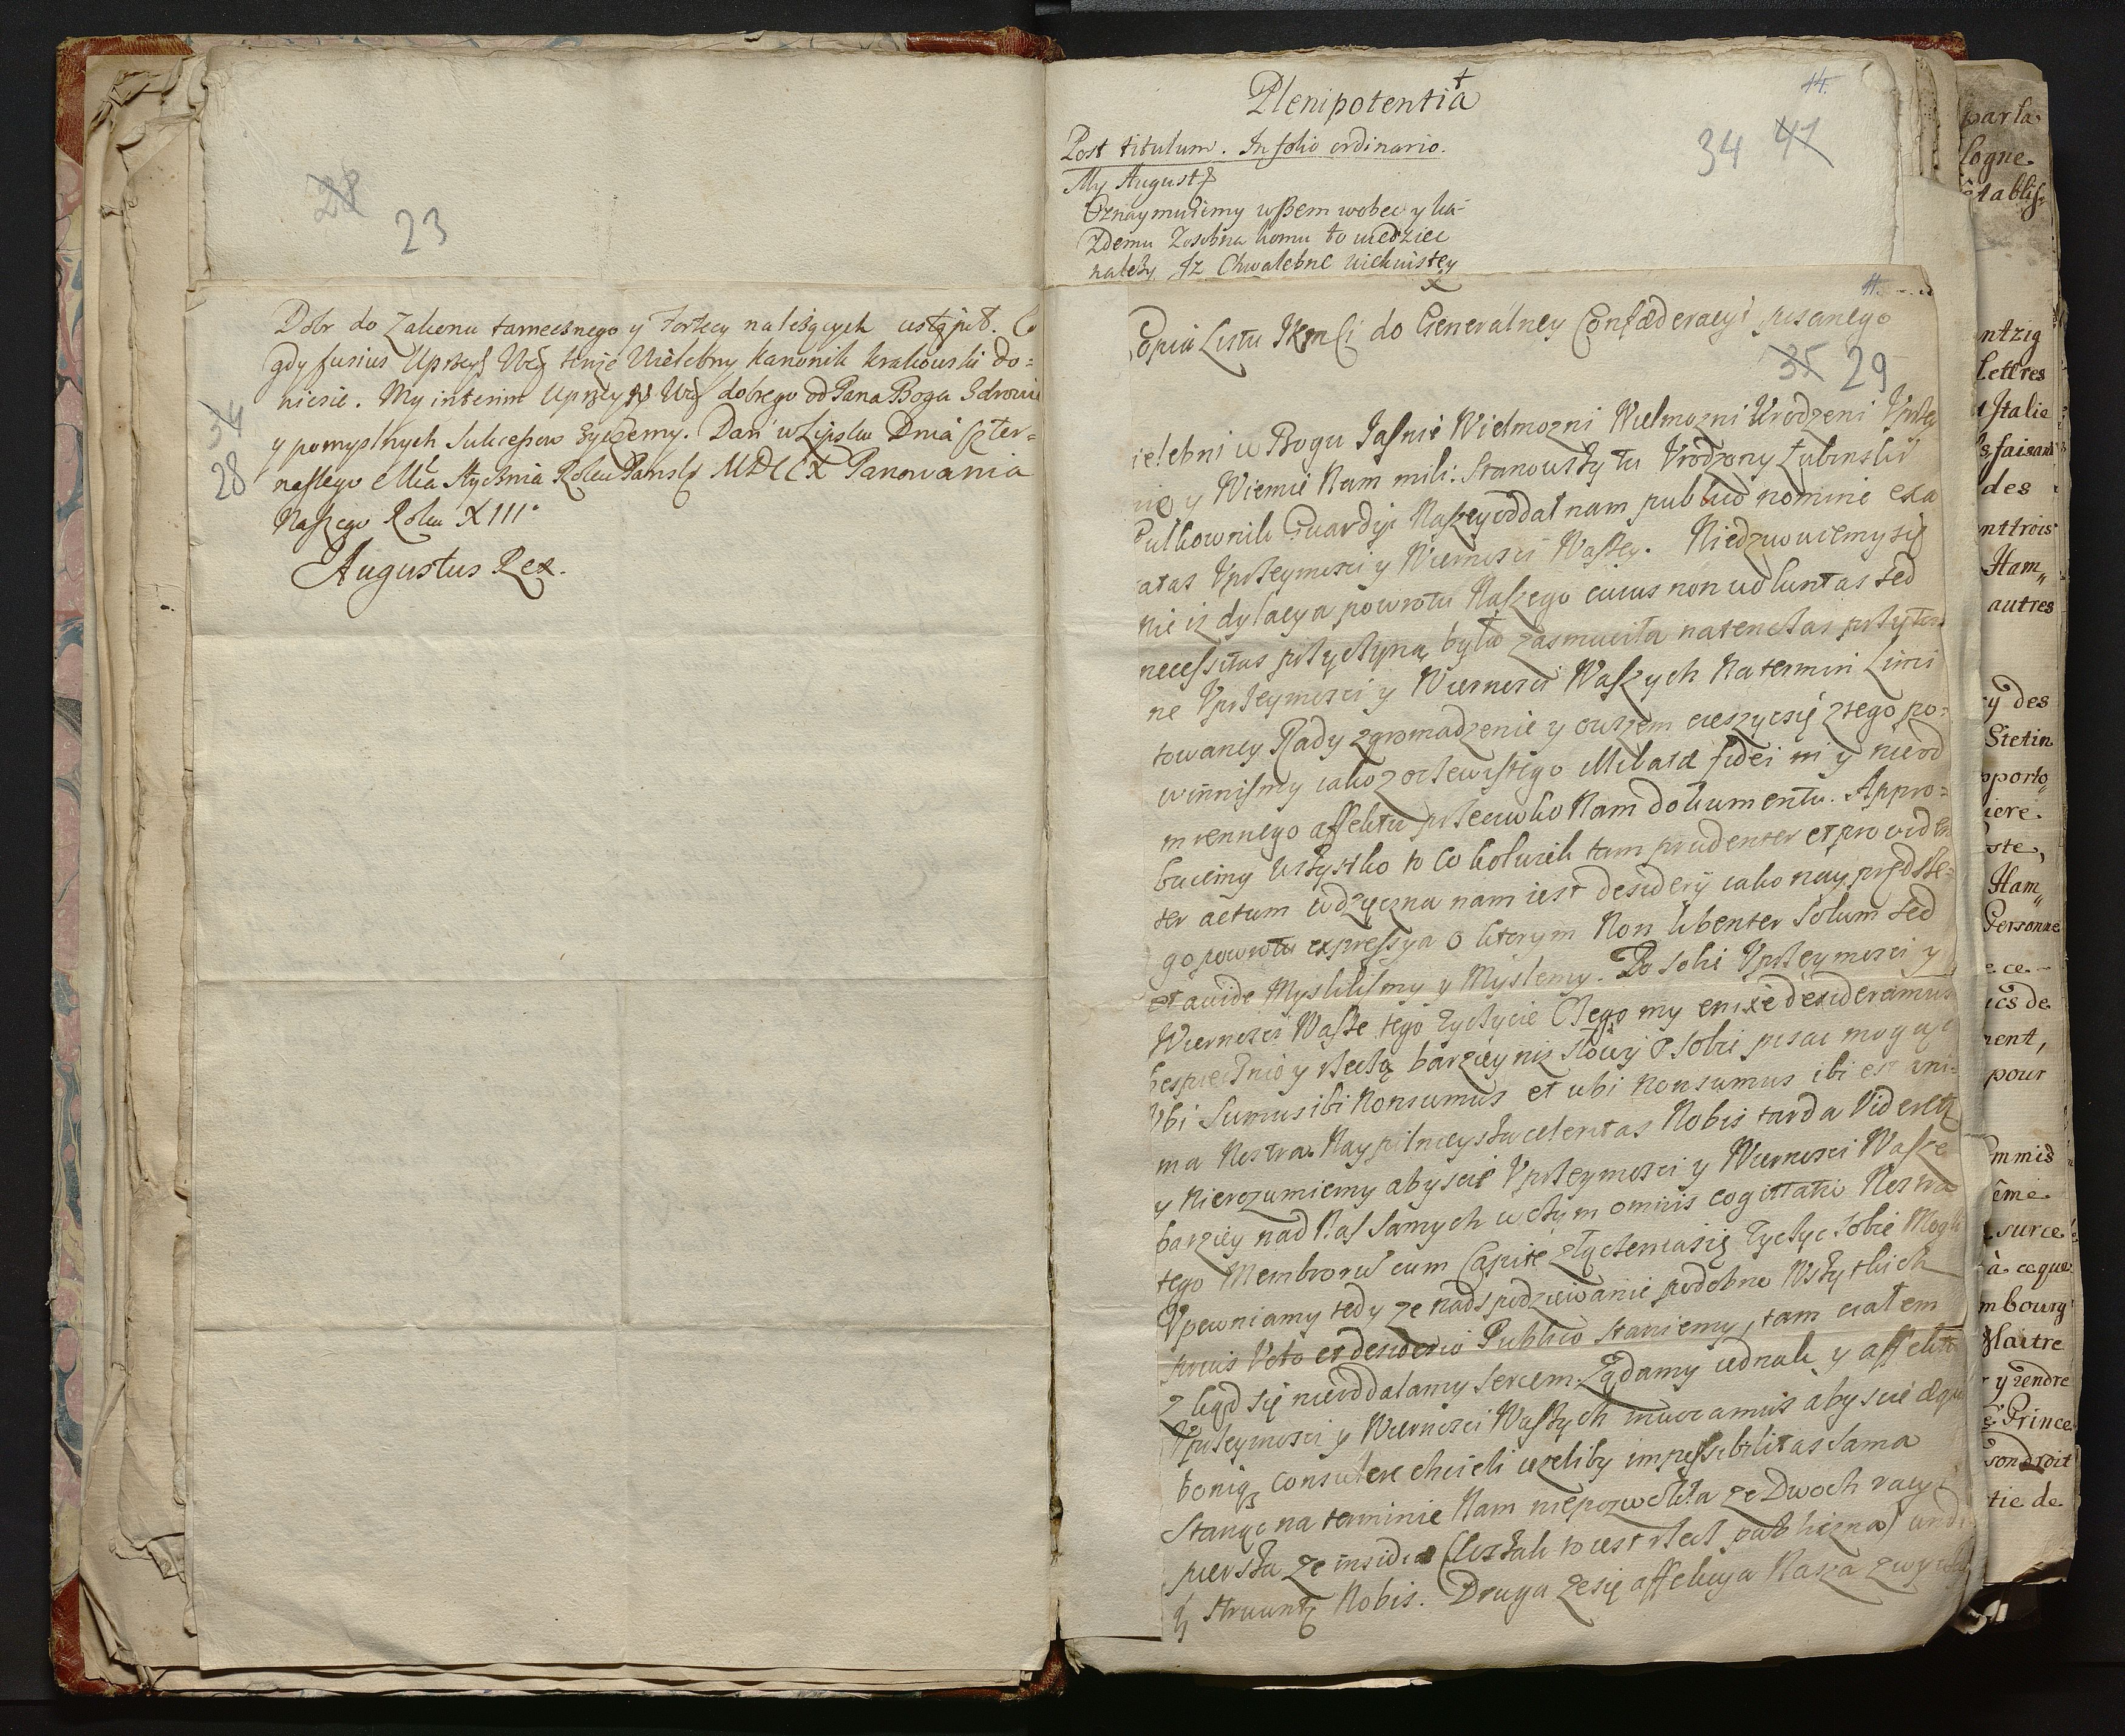 28
23
Dobr do Zakonu tamecznego y Fortecy należących ustąpił. Co
gdy fusius Uprzey tenże Wielebny Kanonik Krakowski do=
niesie. My interim dobrego od Pana Boga Zdrowia
34
y pomyslnych Sukcessow życzemy. Dan w Lipsku Dnia Czter=
28
nastego Mca Stycznia Roku Pansk MDCCX Panowania
Naszego Roku XIII°
Augustus Rex.
Plenipotentia
44.
34 41
Post titulum. In folio ordinario.
My August
Oznaymuiemy wszem wobec y ka=
żdemu Zosobna komu to wiedziec
należy Iz Chwalebne
Copia Listu JKmCi do Generalney Confæderacyi pisanego
35 29
ielebni w Bogu Jasnie Wielmożni Wielmożni Urodzeni Uprzey
nie y Wiernie Nam mili: Stanowszy tu Urodzony Łubinski
Pułkownik Guardyi Naszey oddał nam publico nomine exa
atas Uprzeymosci y Wiernosci Waszey. Niedziwuiemy się
nie iz dylacya powrotu Naszego cuius non voluntas sed
necessitas przyczyną była zasmuciła natenczas przytom
ne Uprzeymosci y Wiernosci Waszych Na termin Limi
towaney Rady zgromadzenie y owszem cieszyc się z tego po=
winnismy iako z oczewistego Illibatæ fidei ni y nieod
miennego affektu przeciwko Nam dokumentu. Appro=
buiemy wszystko to cokolwiek tam prudenter et providen
ter actum wdzięczna nam iest desiderÿ iako nayprędsze=
go powrotu expressya o ktorym Non libenter Solum sed
et avide Myslilismy y Myslemy. Po sobie Uprzeymosci y
Wiernosci Wasze tego życzycie Czego my enixè desideramus
bespiecznie y rzeczą barziey niz słowy o sobie pisac mogąc
Ubi Sumus ibi Nonsumus et ubi nonsumus ibi est ani=
ma Nostra. Naypilnieysza celeritas Nobis tarda Videretur
y Nierozumiemy abyscie Uprzeymosci y Wiernosci Wasze
barziey nad Nas samych w czym omnis cogitatio Nostra
tego Membrorum cum Capite złączenia się życzyc sobie Mogli
Upewniamy tedy ze nad spodziewanie podobno Wszytkich
prius Voto et desiderio Publico Staniemy, tam ciałem
zkąd się nieoddalamy sercem. Ządamy iednak y affektu
Uprzeymosci y Wiernosci Waszych invocamus abyscie
boniq consulere chcieli ieżeliby impossibilitas sama
Stanąc na terminie Nam niepozwoliła ze Dwoch racyi
piersza ze insidiæ (ktak to iest rzecz publiczna) undi
q struuntur Nobis. Druga ze się affekcya Nasza
par la
logne
établis=
ntzig
lettres
Italie
faisant
des
nt trois
Ham"
autres
y des
Stetin
pporto"
iere.
ste,
Ham"
Personne
e ce
ics de
nent,
pour
mmis
ême
surce
à ce que
mbourg
Maitre
y rendre
Prince
son droit
tie de